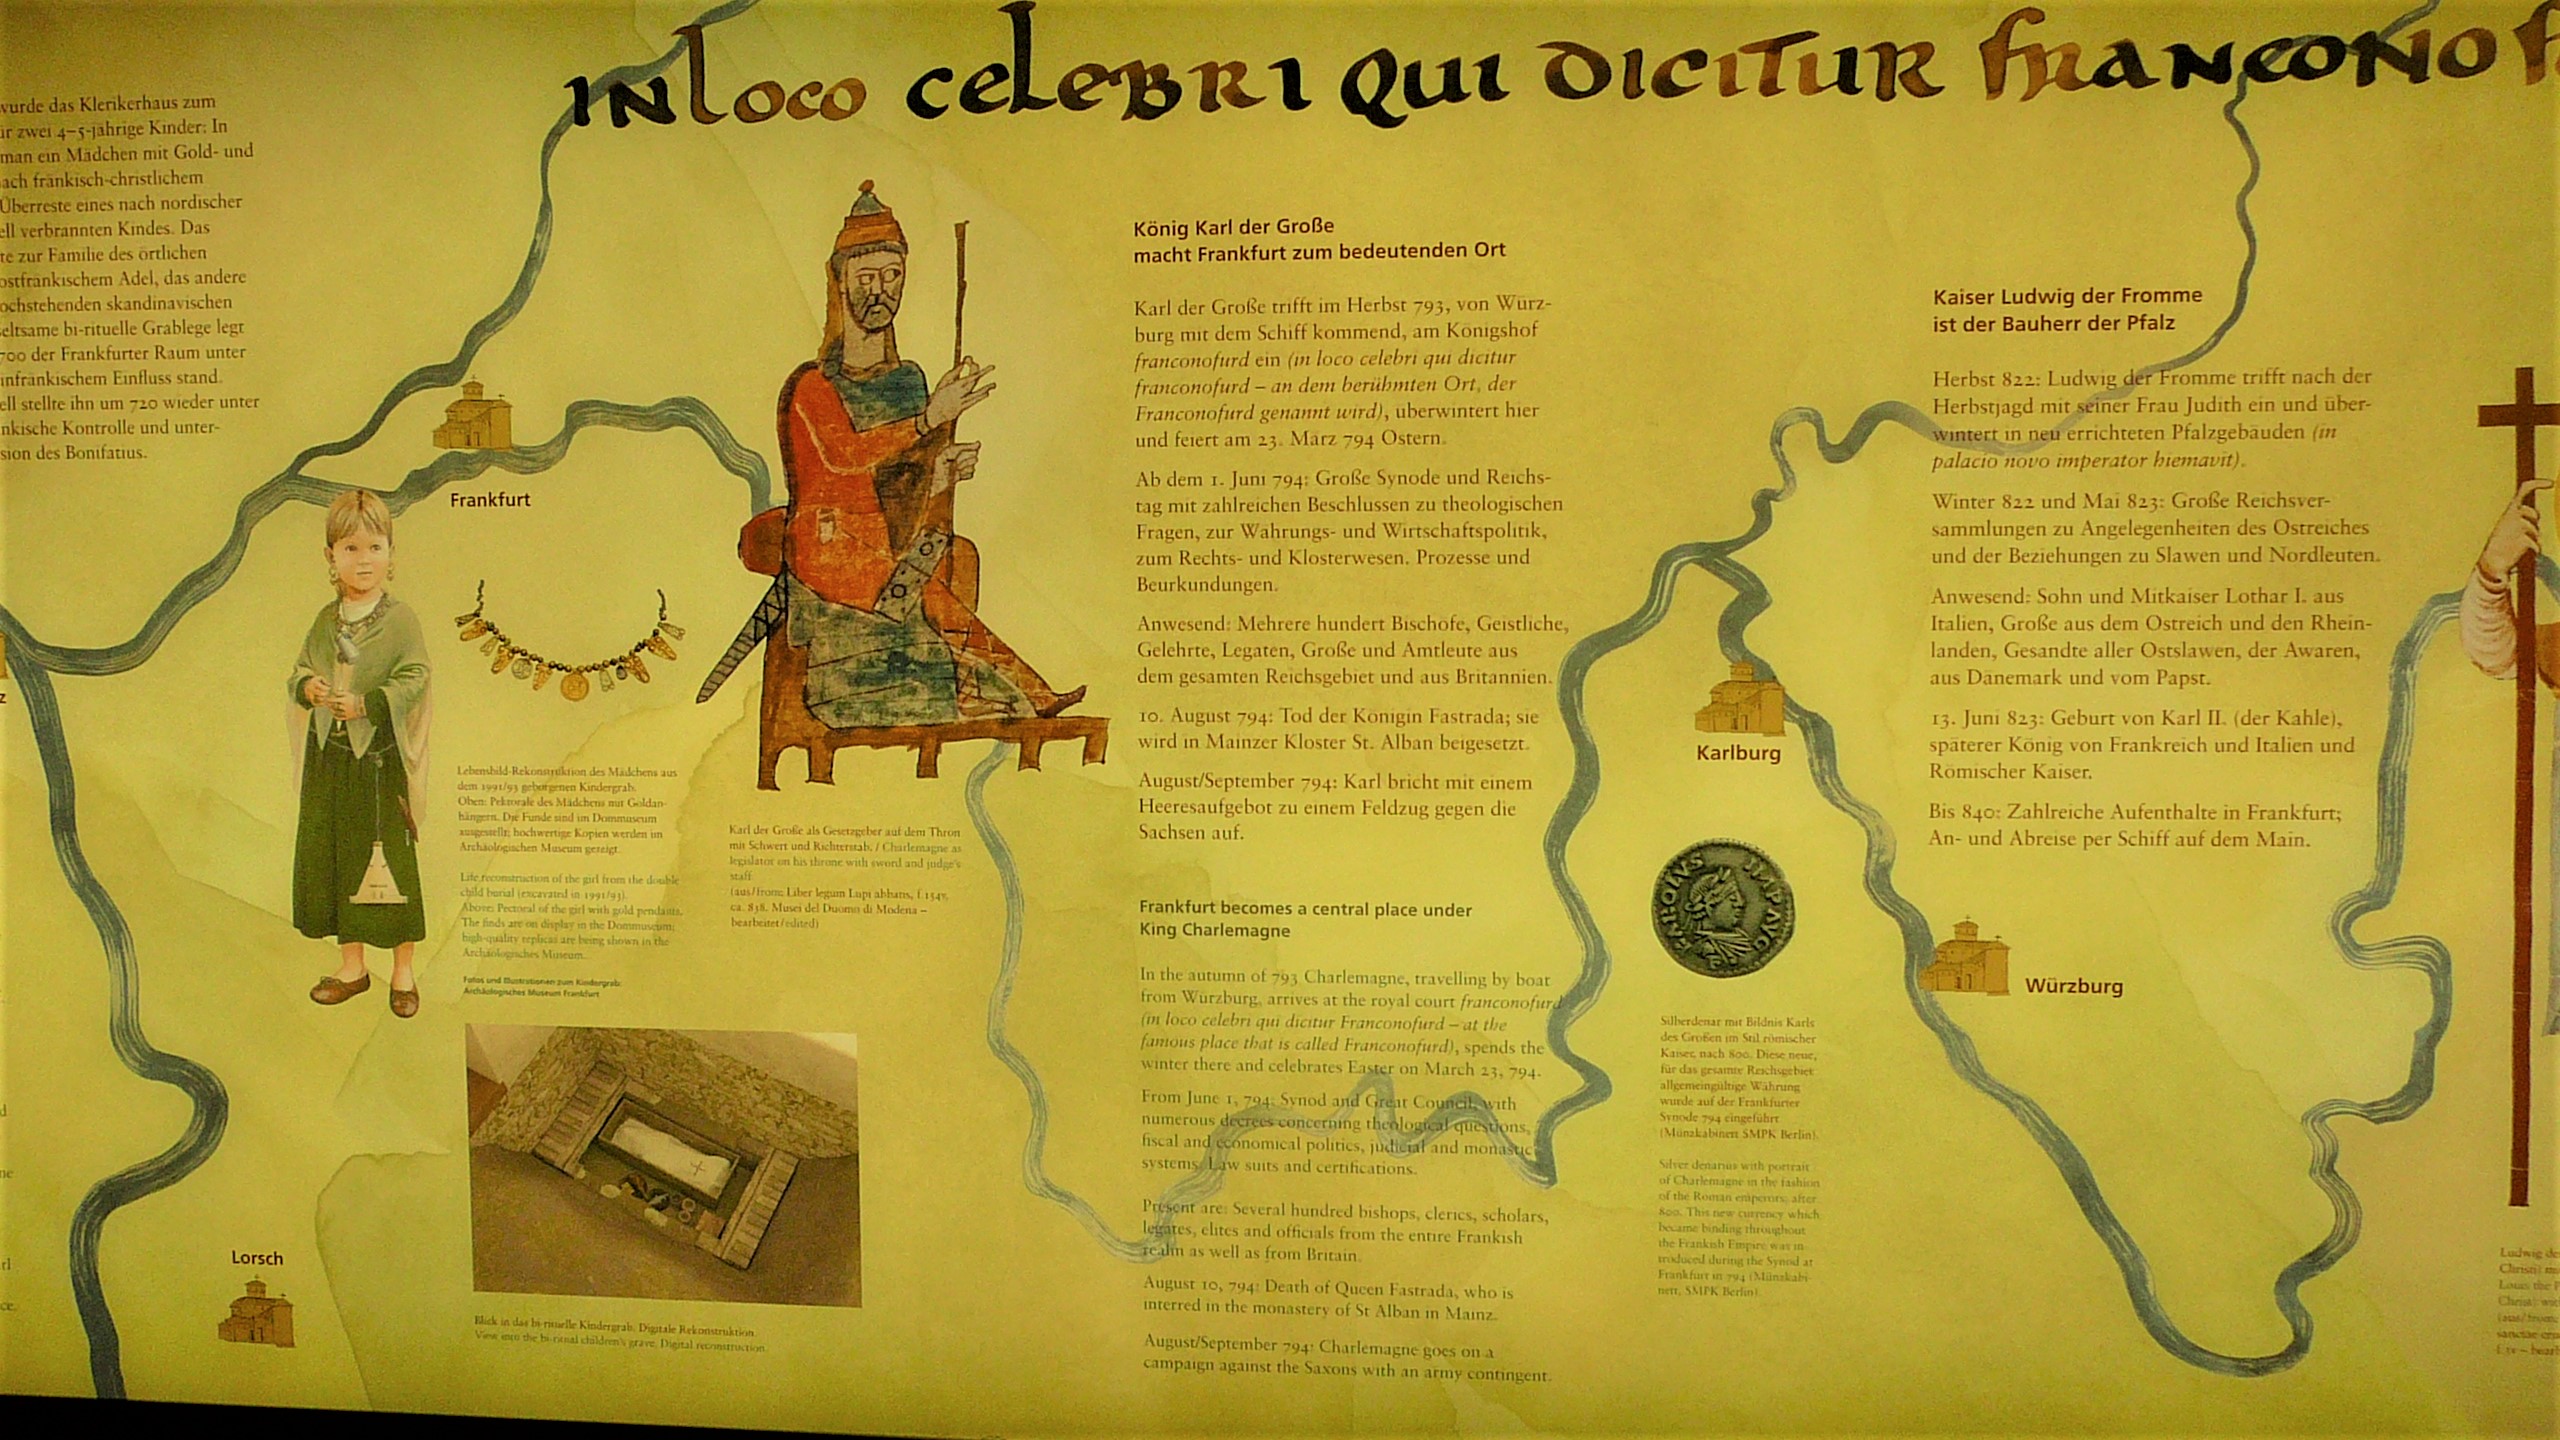 IN loco celebri qui dicitur francono
wurde das Klerikerhaus zum
zwei 4–5-jährige Kinder: In
man ein Mädchen mit Gold- und
ach fränkisch-christlichem
Überreste eines nach nordischer
ell verbrannten Kindes. Das
te zur Familie des örtlichen
ostfränkischem Adel, das andere
ochstehenden skandinavischen
eltsame bi-rituelle Grablege legt
700 der Frankfurter Raum unter
infränkischem Einfluss stand.
ell stellte ihn um 720 wieder unter
nkische Kontrolle und unter-
sion des Bonifatius.
Frankfurt
Lebensbild-Rekonstruktion des Mädchens aus
dem 1991/93 geborgenen Kindergrab.
Oben: Pektorale des Mädchens mit Goldan-
hängern. Die Funde sind im Dommuseum
ausgestellt; hochwertige Kopien werden im
Archäologischen Museum gezeigt.
Life reconstruction of the girl from the double
child burial (excavated in 1991/93).
Above: Pectoral of the girl with gold pendants.
The finds are on display in the Dommuseum;
high-quality replicas are being shown in the
Archäologisches Museum.
Fotos und Illustrationen zum Kindergrab:
Archäologisches Museum Frankfurt
Karl der Große als Gesetzgeber auf dem Thron
mit Schwert und Richterstab. / Charlemagne as
legislator on his throne with sword and judge's
staff
(aus/from: Liber legum Lupi abbatis, f. 154v,
ca. 838. Musei del Duomo di Modena –
bearbeitet/edited)
Blick in das bi-rituelle Kindergrab. Digitale Rekonstruktion.
View into the bi-ritual children's grave. Digital reconstruction.
Lorsch
König Karl der Große
macht Frankfurt zum bedeutenden Ort
Karl der Große trifft im Herbst 793, von Würz-
burg mit dem Schiff kommend, am Königshof
franconofurd ein (in loco celebri qui dicitur
franconofurd – an dem berühmten Ort, der
Franconofurd genannt wird), überwintert hier
und feiert am 23. März 794 Ostern.
Ab dem 1. Juni 794: Große Synode und Reichs-
tag mit zahlreichen Beschlüssen zu theologischen
Fragen, zur Währungs- und Wirtschaftspolitik,
zum Rechts- und Klosterwesen. Prozesse und
Beurkundungen.
Anwesend: Mehrere hundert Bischöfe, Geistliche,
Gelehrte, Legaten, Große und Amtleute aus
dem gesamten Reichsgebiet und aus Britannien.
10. August 794: Tod der Königin Fastrada; sie
wird in Mainzer Kloster St. Alban beigesetzt.
August/September 794: Karl bricht mit einem
Heeresaufgebot zu einem Feldzug gegen die
Sachsen auf.
Frankfurt becomes a central place under
King Charlemagne
In the autumn of 793 Charlemagne, travelling by boat
from Würzburg, arrives at the royal court franconofurd
(in loco celebri qui dicitur Franconofurd – at the
famous place that is called Franconofurd), spends the
winter there and celebrates Easter on March 23, 794.
From June 1, 794: Synod and Great Council, with
numerous decrees concerning theological questions,
fiscal and economical politics, judicial and monastic
systems. Law suits and certifications.
Present are: Several hundred bishops, clerics, scholars,
legates, elites and officials from the entire Frankish
realm as well as from Britain.
August 10, 794: Death of Queen Fastrada, who is
interred in the monastery of St Alban in Mainz.
August/September 794: Charlemagne goes on a
campaign against the Saxons with an army contingent.
Karlburg
KAROLVS IMP AVG
Silberdenar mit Bildnis Karls
des Großen im Stil römischer
Kaiser, nach 800. Diese neue,
für das gesamte Reichsgebiet
allgemeingültige Währung
wurde auf der Frankfurter
Synode 794 eingeführt
(Münzkabinett SMPK Berlin).
Silver denarius with portrait
of Charlemagne in the fashion
of the Roman emperors, after
800. This new currency which
became binding throughout
the Frankish Empire was in-
troduced during the Synod at
Frankfurt in 794 (Münzkabi-
nett, SMPK Berlin).
Würzburg
Kaiser Ludwig der Fromme
ist der Bauherr der Pfalz
Herbst 822: Ludwig der Fromme trifft nach der
Herbstjagd mit seiner Frau Judith ein und über-
wintert in neu errichteten Pfalzgebäuden (in
palacio novo imperator hiemavit).
Winter 822 und Mai 823: Große Reichsver-
sammlungen zu Angelegenheiten des Ostreiches
und der Beziehungen zu Slawen und Nordleuten.
Anwesend: Sohn und Mitkaiser Lothar I. aus
Italien, Große aus dem Ostreich und den Rhein-
landen, Gesandte aller Ostslawen, der Awaren,
aus Dänemark und vom Papst.
13. Juni 823: Geburt von Karl II. (der Kahle),
späterer König von Frankreich und Italien und
Römischer Kaiser.
Bis 840: Zahlreiche Aufenthalte in Frankfurt;
An- und Abreise per Schiff auf dem Main.
Ludwig de
Christi m
Louis the P
Christ) wit
(aus/from:
sanctae cru